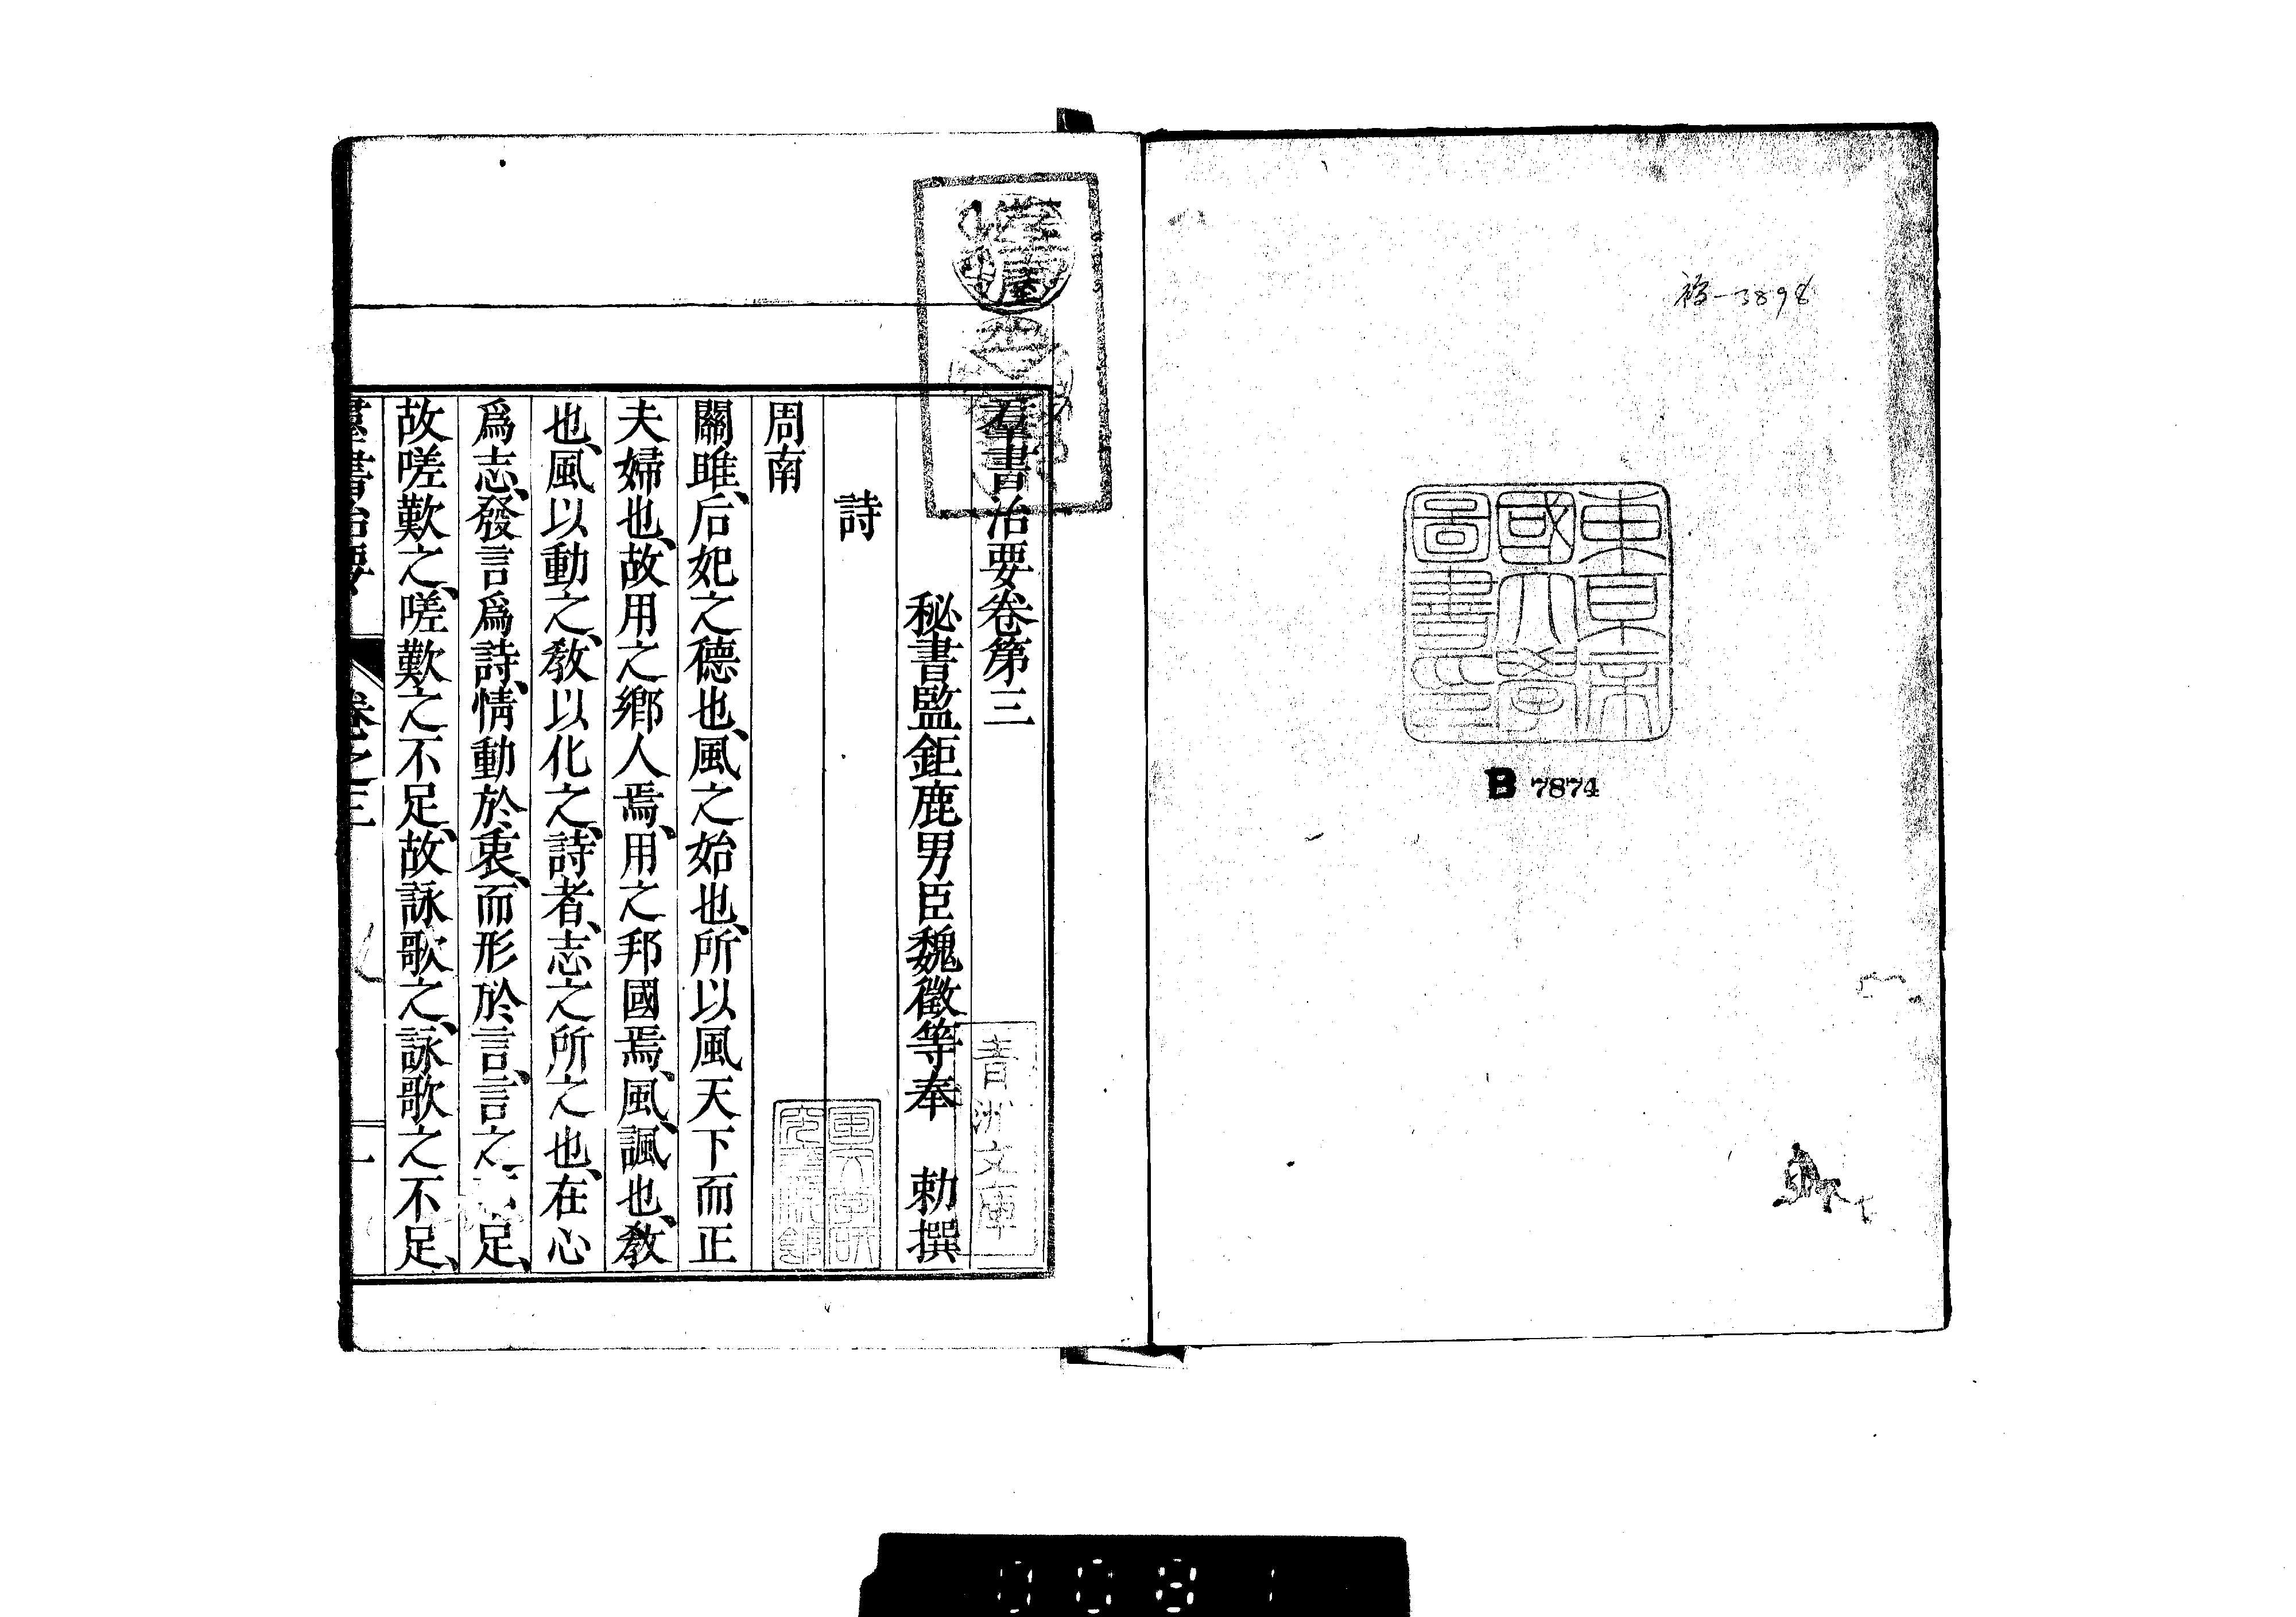 襍-3898
東京帝
國大學
圖書印
B 7874
羣書治要卷第三
秘書監鉅鹿男臣魏徵等奉 勅撰
詩
周南
關雎、后妃之德也、風之始也、所以風天下而正
夫婦也、故用之鄉人焉、用之邦國焉、風、諷也、敎
也、風以動之、敎以化之、詩者、志之所之也、在心
爲志、發言爲詩、情動於衷、而形於言、言之 足、
故嗟歎之、嗟歎之不足、故詠歌之、詠歌之不足、
羣書治要 卷之三 一
靑洲文庫
0081